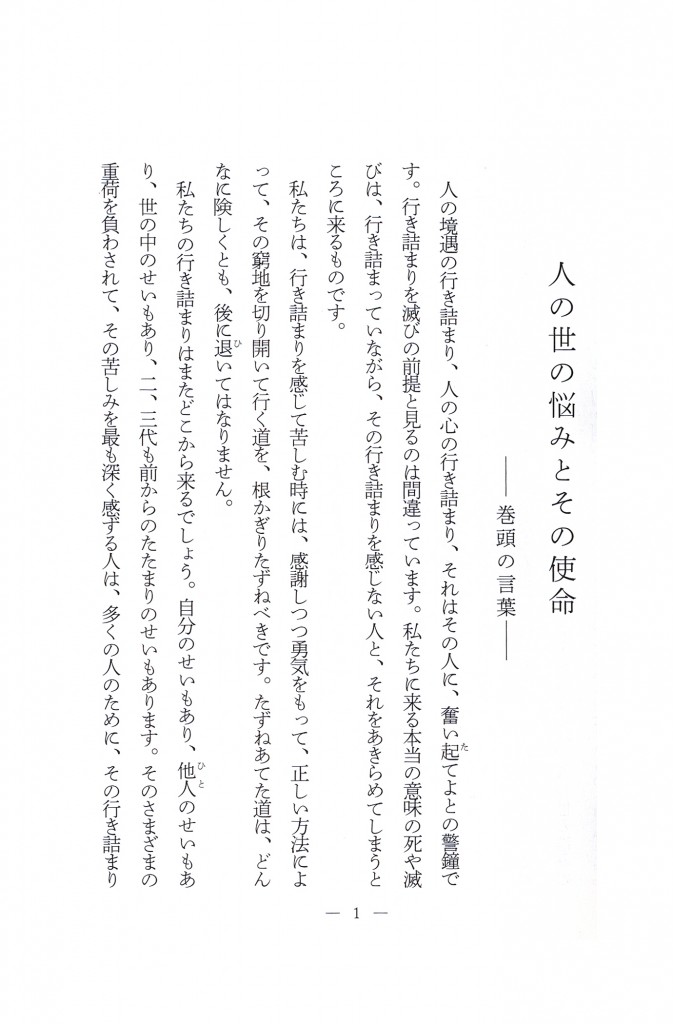 人の世の悩みとその使命
――巻頭の言葉――
人の境遇の行き詰まり、人の心の行き詰まり、それはその人に、奮い起てよとの警鐘で
す。行き詰まりを滅びの前提と見るのは間違っています。私たちに来る本当の意味の死や滅
びは、行き詰まっていながら、その行き詰まりを感じない人と、それをあきらめてしまうと
ころに来るものです。
私たちは、行き詰まりを感じて苦しむ時には、感謝しつつ勇気をもって、正しい方法によ
って、その窮地を切り開いて行く道を、根かぎりたずねべきです。たずねあてた道は、どん
なに険しくとも、後に退いてはなりません。
私たちの行き詰まりはまたどこから来るでしょう。自分のせいもあり、他人のせいもあ
り、世の中のせいもあり、二、三代も前からのたたまりのせいもあります。そのさまざまの
重荷を負わされて、その苦しみを最も深く感ずる人は、多くの人のために、その行き詰まり
— 1 —